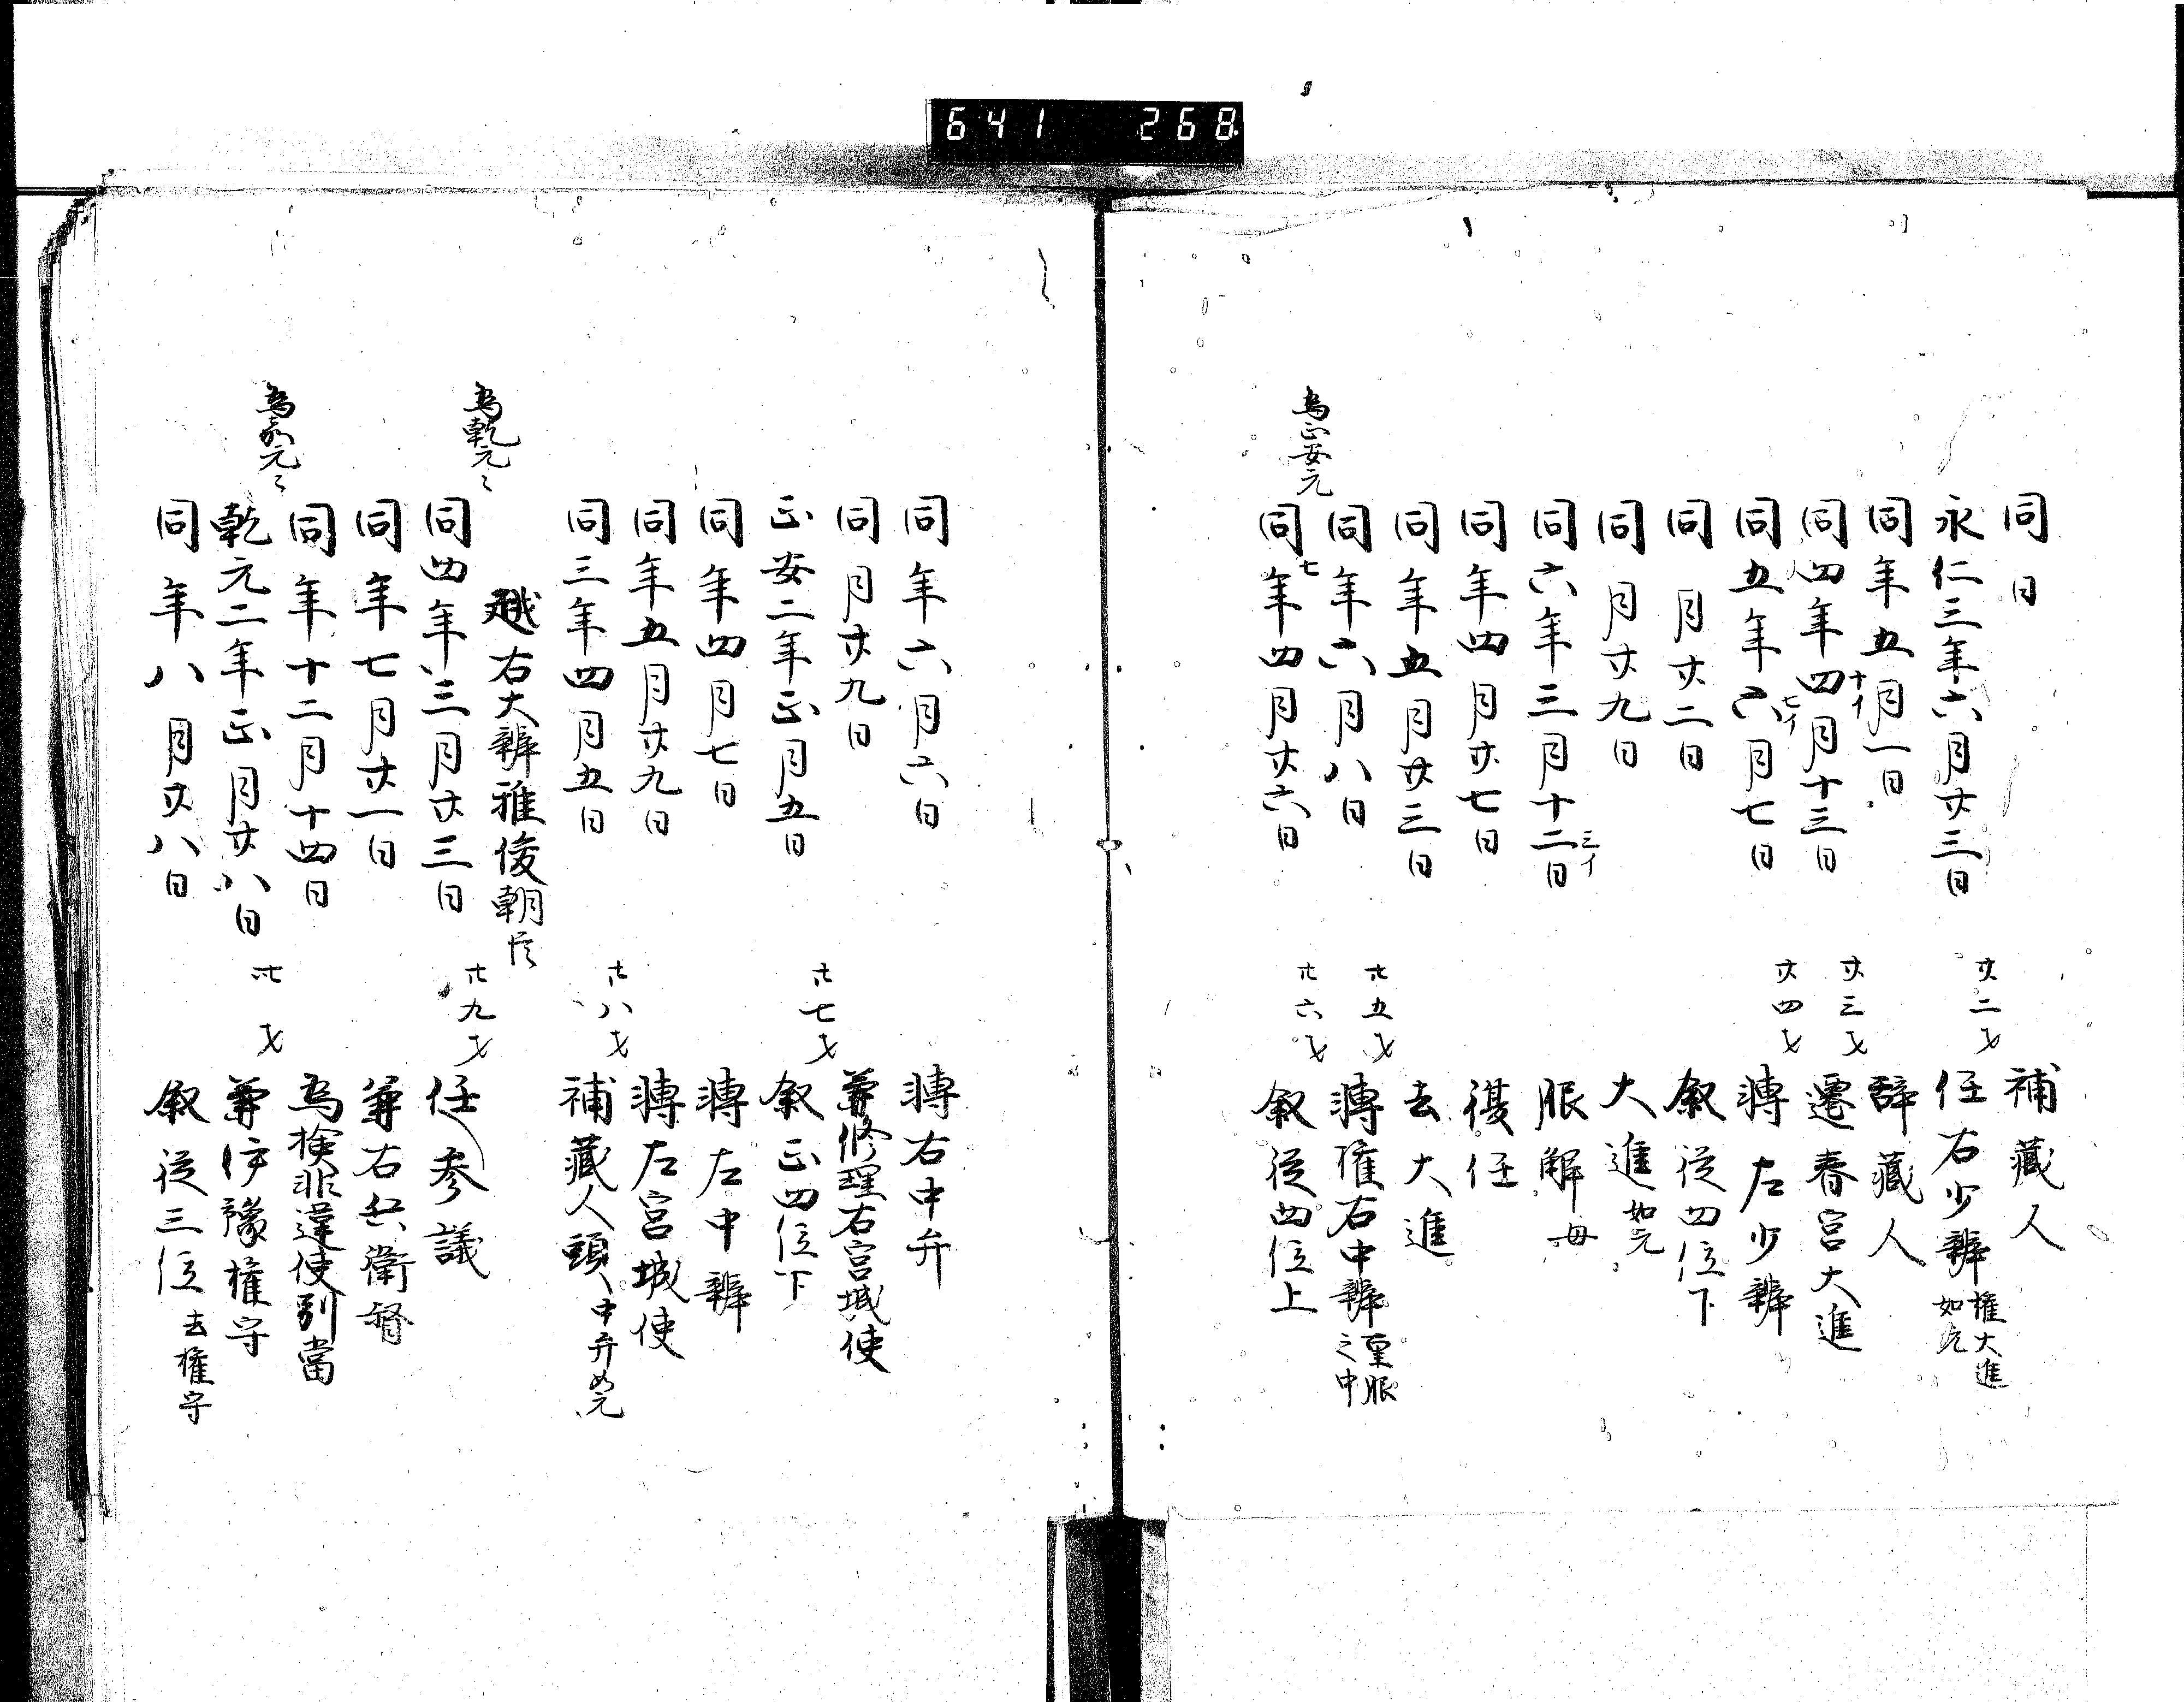 641 268
同日 補藏人
永仁三年六月廿三日 廿二才 任右少辨 權大進如元
同年五月一日 十イ 辞藏人
同四年四月十三日 七イ 廿三才 遷春宮大進
同五年六月七日 廿四才 轉左少辨
同月廿二日 叙從四位下
同月廿九日 大進如元
同六年三月十二日 三イ 服解 母
同年四月廿七日 復任
同年五月廿三日 去大進
同年六月八日 廿五才 轉權右中辨 重服之中
為正安元
同七年四月廿六日 廿六才 叙從四位上
同年六月六日 轉右中弁
同月廿九日 兼修理右宮城使
正安二年正月五日 廿七才 叙正四位下
同年四月七日 轉左中辨
同年五月廿九日 轉左宮城使
同三年四月五日 廿八才 補藏人頭 中弁如元
越右大辨雅俊朝臣
為乾元々
同四年三月廿三日 廿九才 任参議
同年七月廿一日 兼右兵衛督
同年十二月十四日 為檢非違使別當
為嘉元々
乾元二年正月廿八日 卅才 兼伊豫權守
同年八月廿八日 叙從三位 去權守